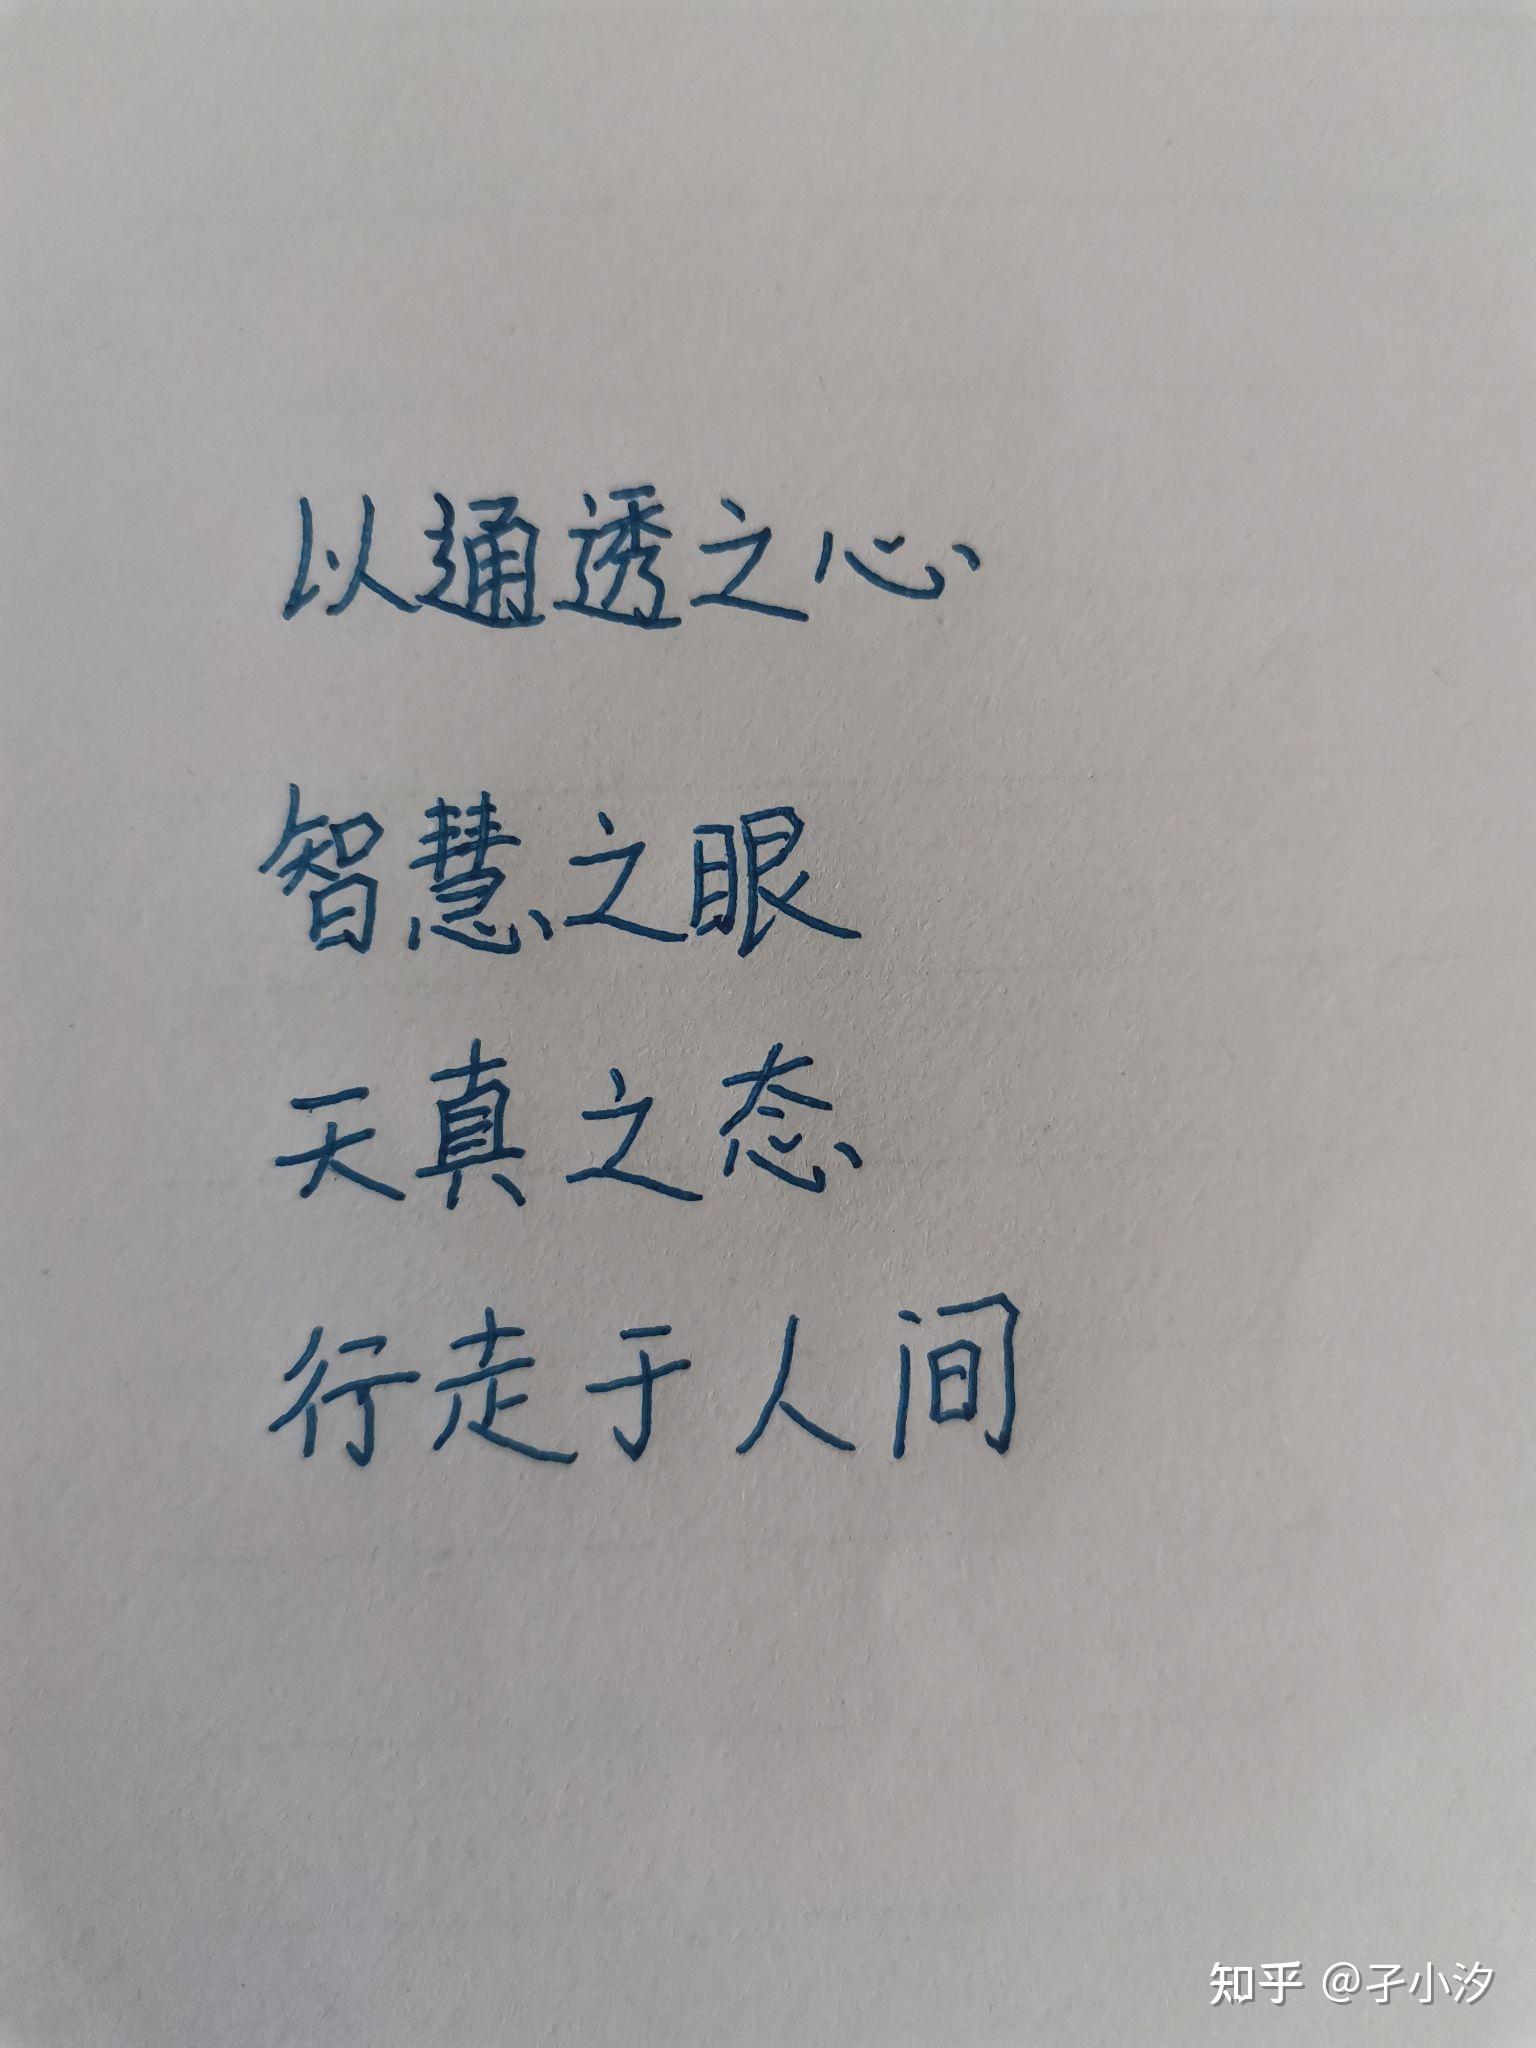 以通透之心
智慧之眼
天真之态
行走于人间
知乎 @孑小汐